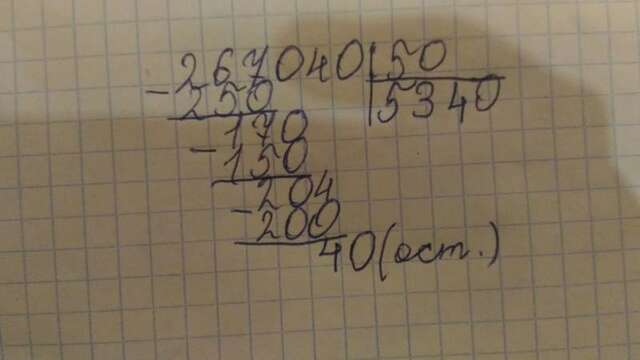 267040 50
- 250 5340
170
- 150
204
- 200
40 (ост.)